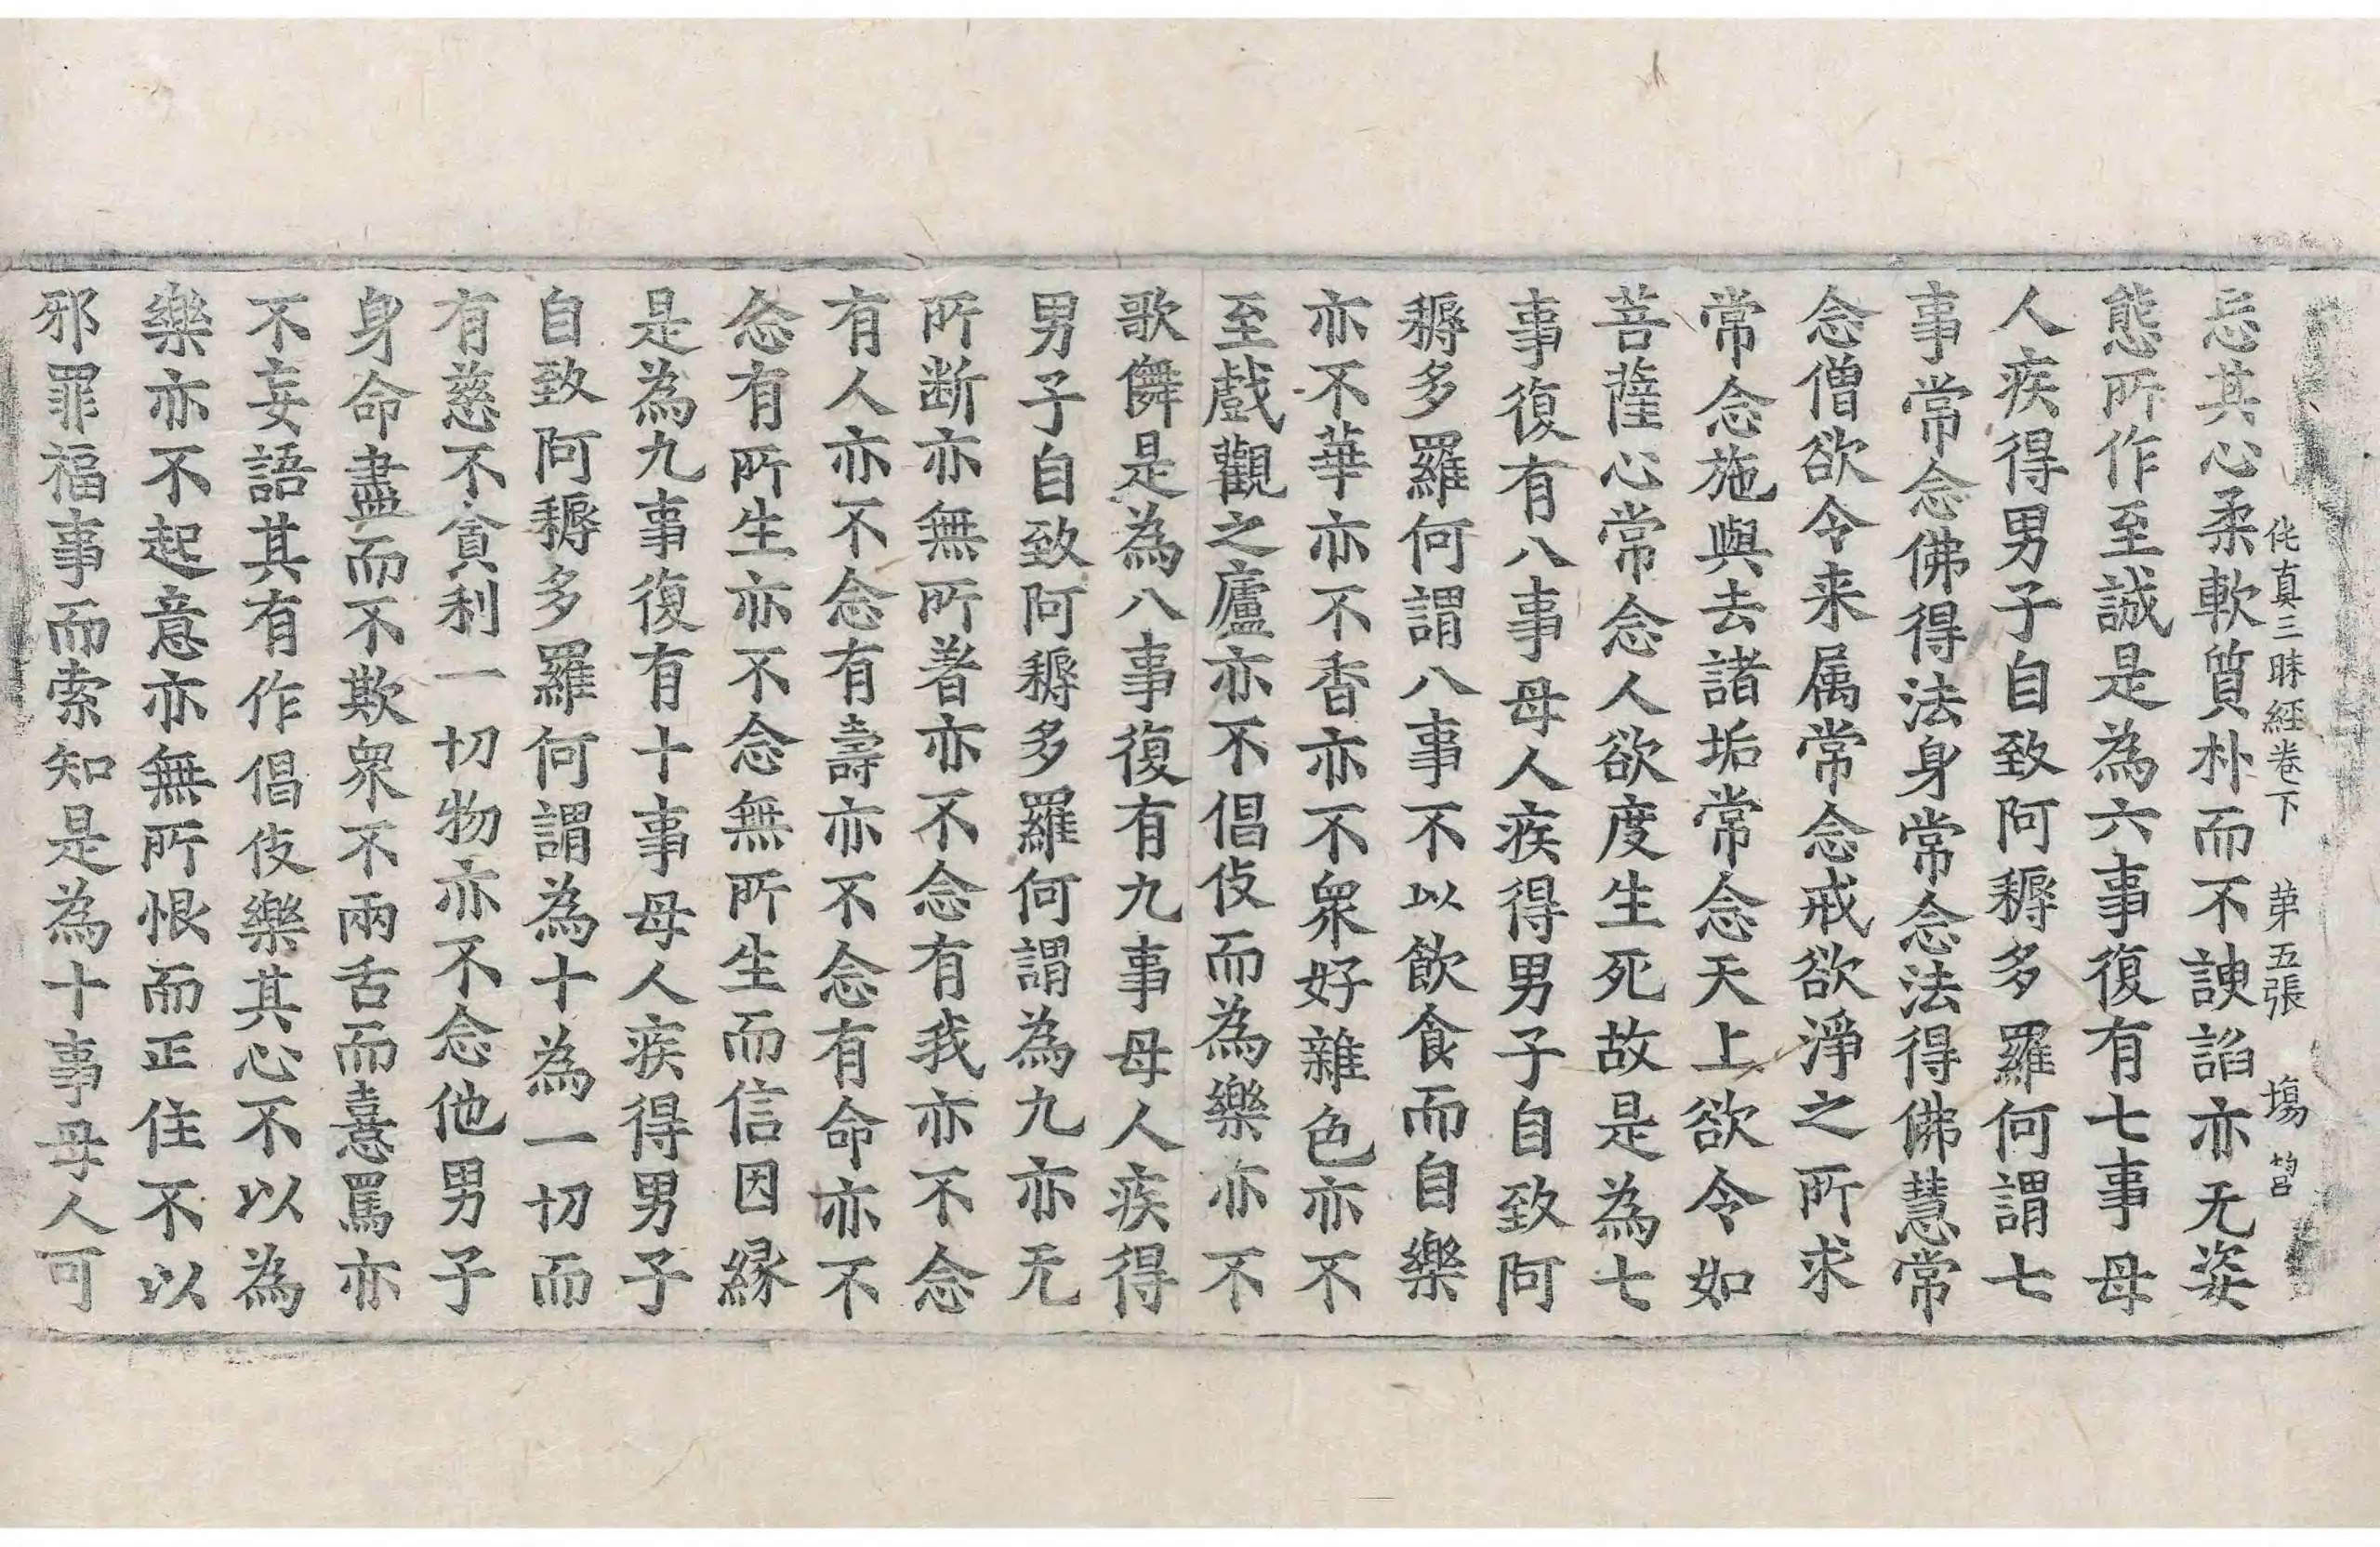 佗真三昧經卷下 苐五張 塲
忘其心柔軟質朴而不諛諂亦无姿
態所作至誠是為六事復有七事母
人疾得男子自致阿耨多羅何謂七
事常念佛得法身常念法得佛慧常
念僧欲令来属常念戒欲淨之所求
常念施與去諸垢常念天上欲令如
菩薩心常念人欲度生死故是為七
事復有八事母人疾得男子自致阿
耨多羅何謂八事不以飲食而自樂
亦不華亦不香亦不眾好雜色亦不
至戲觀之廬亦不倡伎而為樂亦不
歌儛是為八事復有九事母人疾得
男子自致阿耨多羅何謂為九亦无
所断亦無所著亦不念有我亦不念
有人亦不念有壽亦不念有命亦不
念有所生亦不念無所生而信因緣
是為九事復有十事母人疾得男子
自致阿耨多羅何謂為十為一切而
有慈不貪利一切物亦不念他男子
身命盡而不欺眾不兩舌而憙罵亦
不妄語其有作倡伎樂其心不以為
樂亦不起意亦無所恨而正住不以
邪罪福事而索知是為十事母人可